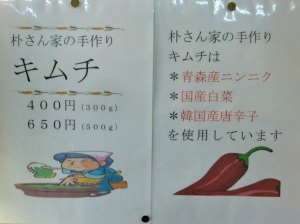 朴さん家の手作り
キムチ
４００円(300g)
６５０円(500g)
朴さん家の手作り
キムチは
＊青森産ニンニク
＊国産白菜
＊韓国産唐辛子
を使用しています